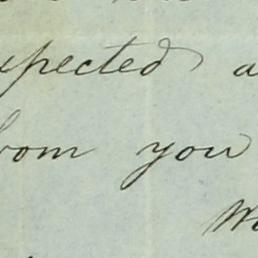 xpected a
from you